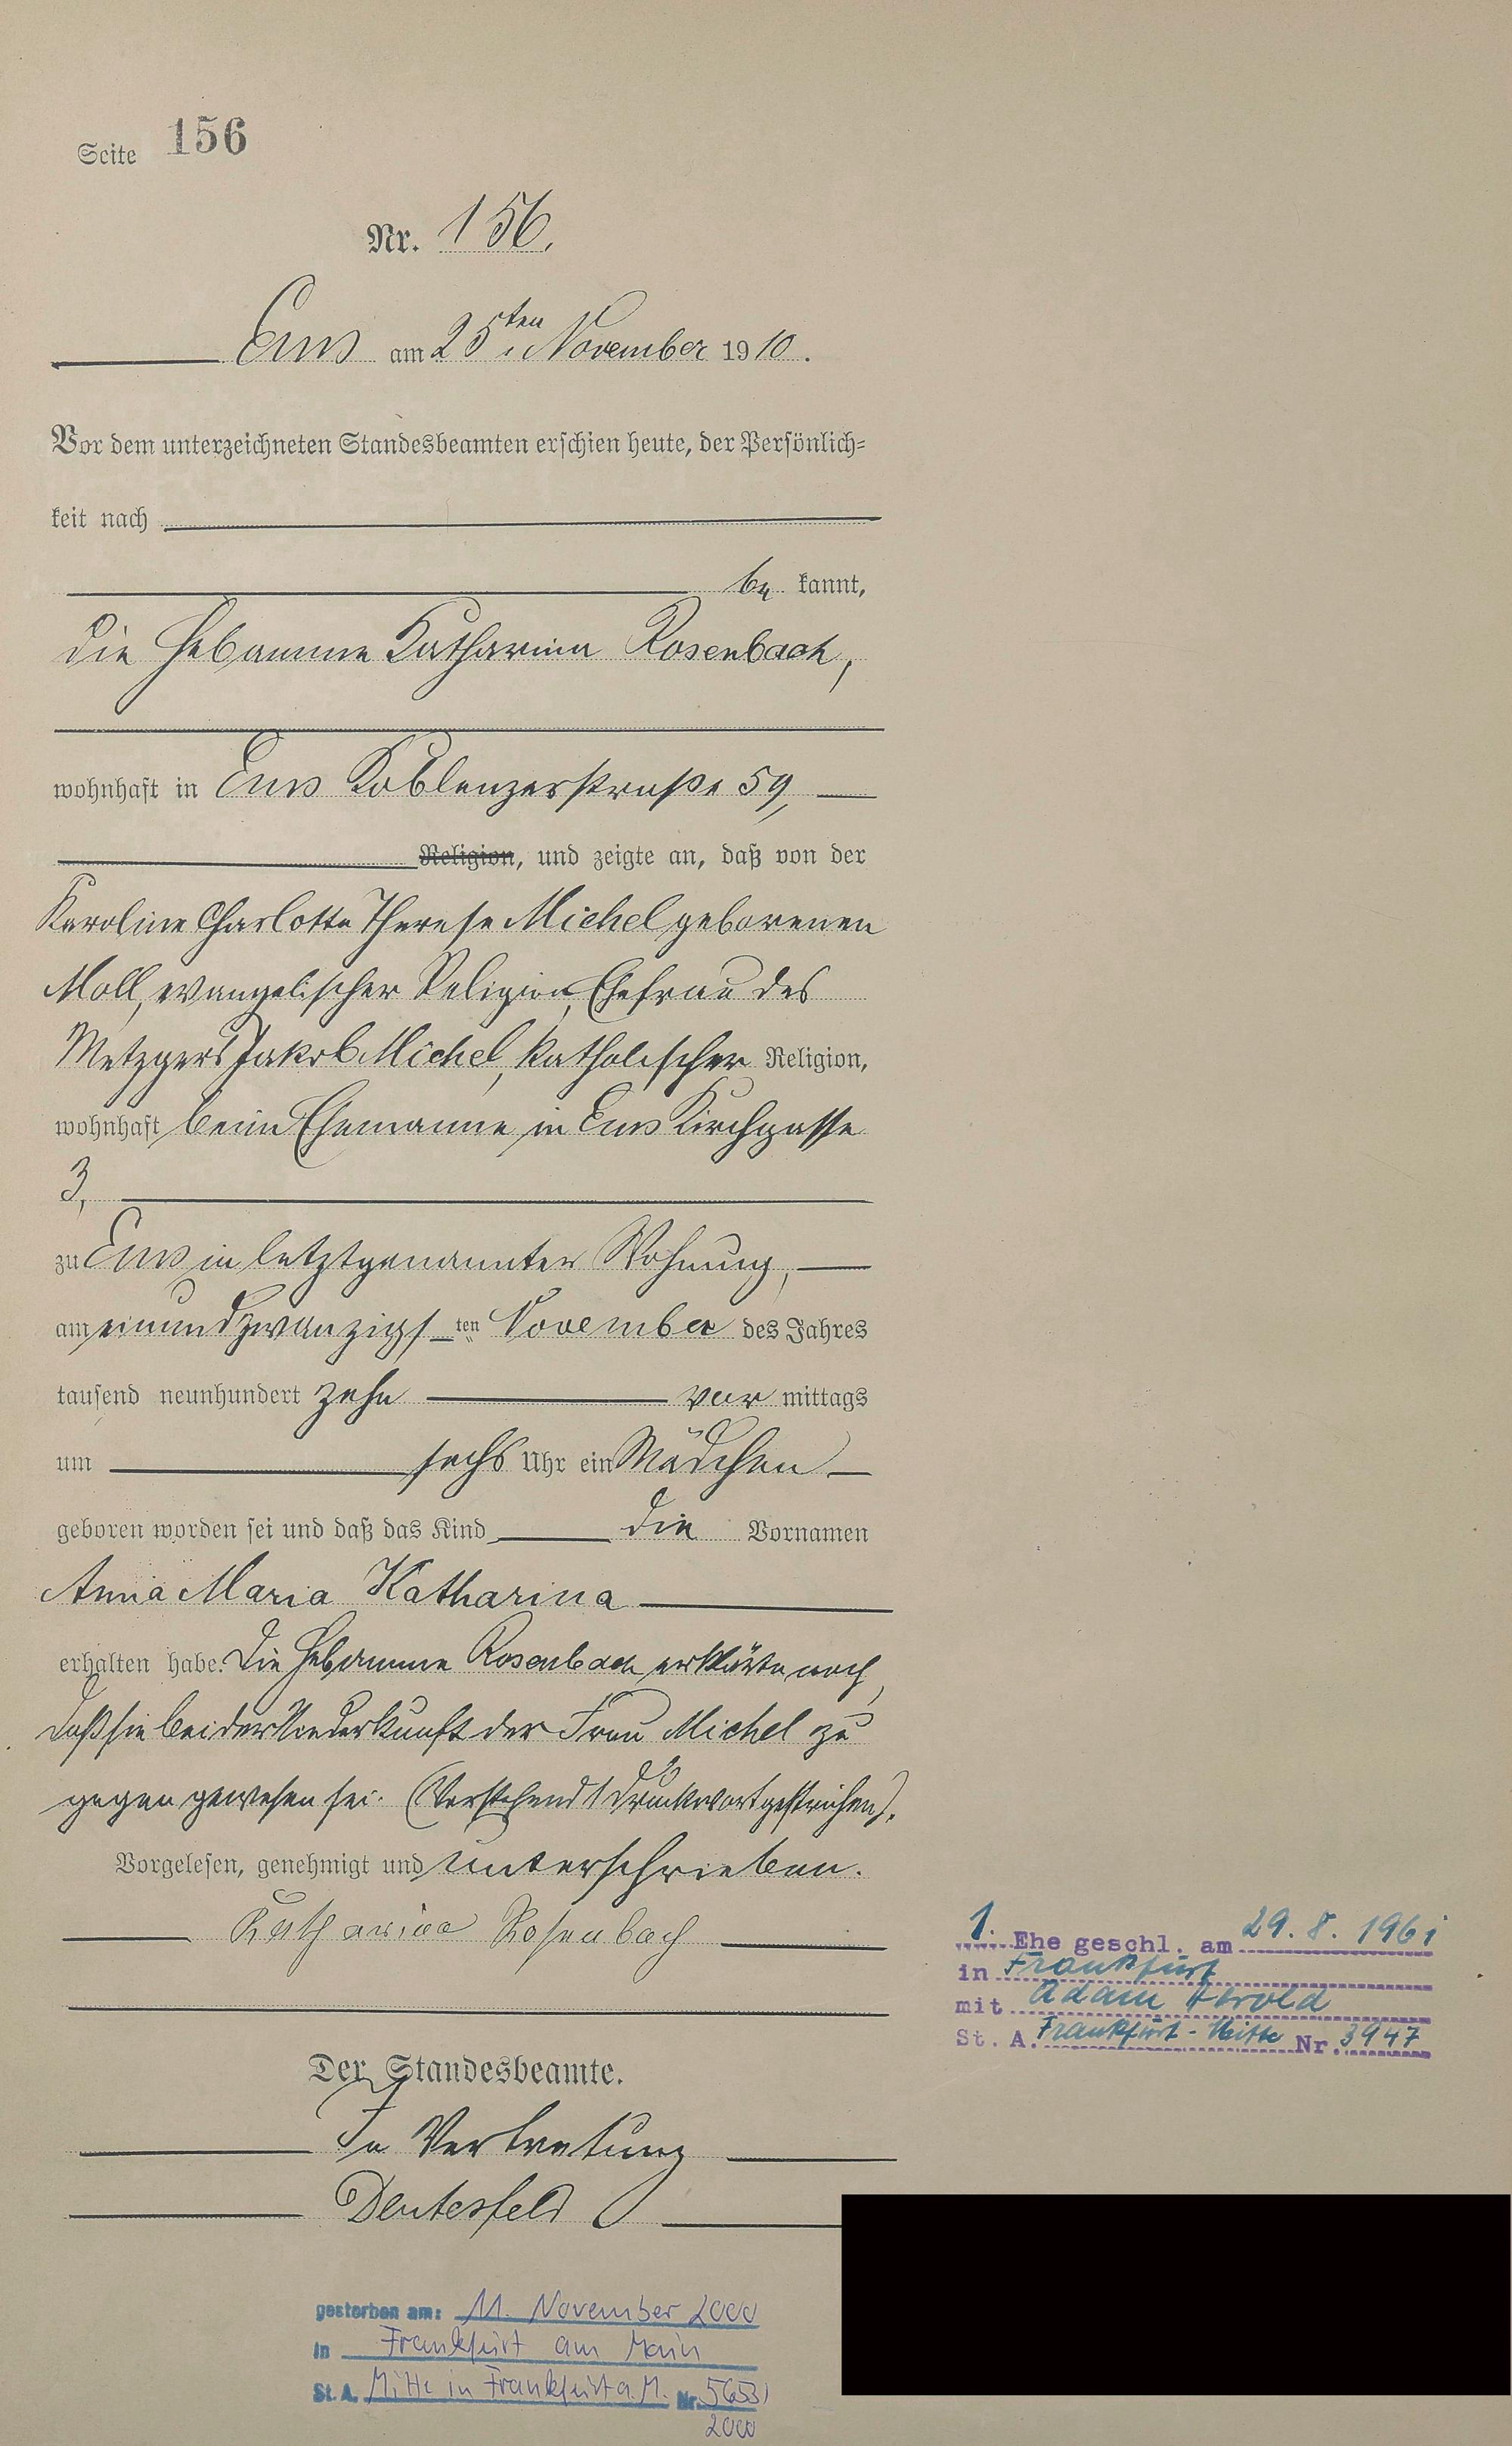 Seite 156
Nr. 156.
Ems am 25ten November 1910.
Vor dem unterzeichneten Standesbeamten erschien heute, der Persönlich-
keit nach
be kannt,
die Hebamme Katharina Rosenbach,
wohnhaft in Ems Koblenzerstraße 59,
Religion, und zeigte an, daß von der
Karoline Charlotte Therese Michel geborenen
Moll, evangelischer Religion, Ehefrau des
Metzgers Jakob Michel, katholischer Religion,
wohnhaft beim Ehemanne in Ems Kirchgasse
3,
zu Ems in letztgenannter Wohnung,
am einundzwanzigsten November des Jahres
tausend neunhundert zehn vor mittags
um sechs Uhr ein Mädchen
geboren worden sei und daß das Kind die Vornamen
Anna Maria Katharina
erhalten habe. Die Hebamme Rosenbach erklärte noch,
daß sie bei der Niederkunft der Frau Michel zu
gegen gewesen sei. (Vorstehend 1 Druckwort gestrichen).
Vorgelesen, genehmigt und unterschrieben.
Katharina Rosenbach
Der Standesbeamte.
In Vertretung
1. Ehe geschl. am 29.8.1961
in Frankfurt
mit Adam Herold
St. A. Frankfurt-Mitte Nr. 3947
gestorben am: 11. November 2000
in Frankfurt am Main
St. A. Mitte in Frankfurt a. M. Nr. 5653/
2000